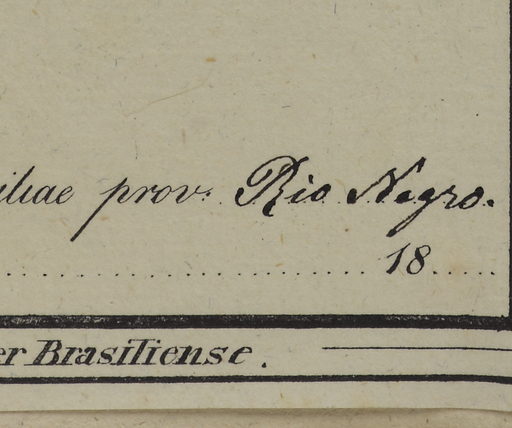 iliae prov: Rio Negro.
18
er Brasiliense.